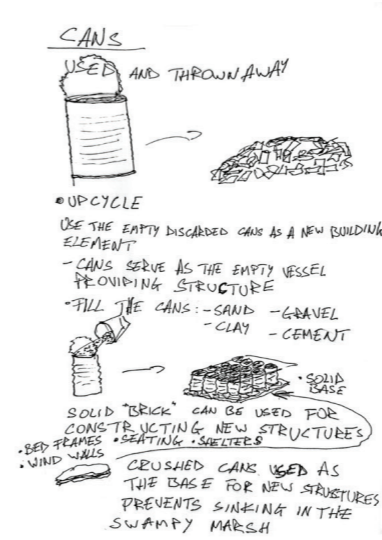 CANS
USED AND THROWN AWAY
• UPCYCLE
USE THE EMPTY DISCARDED CANS AS A NEW BUILDING
ELEMENT
- CANS SERVE AS THE EMPTY VESSEL
PROVIDING STRUCTURE
• FILL THE CANS: - SAND - GRAVEL
- CLAY - CEMENT
• SOLID
BASE
SOLID "BRICK" CAN BE USED FOR
CONSTRUCTING NEW STRUCTURES
• BED FRAMES • SEATING • SHELTERS
• WIND WALLS
CRUSHED CANS USED AS
THE BASE FOR NEW STRUCTURES
PREVENTS SINKING IN THE
SWAMPY MARSH